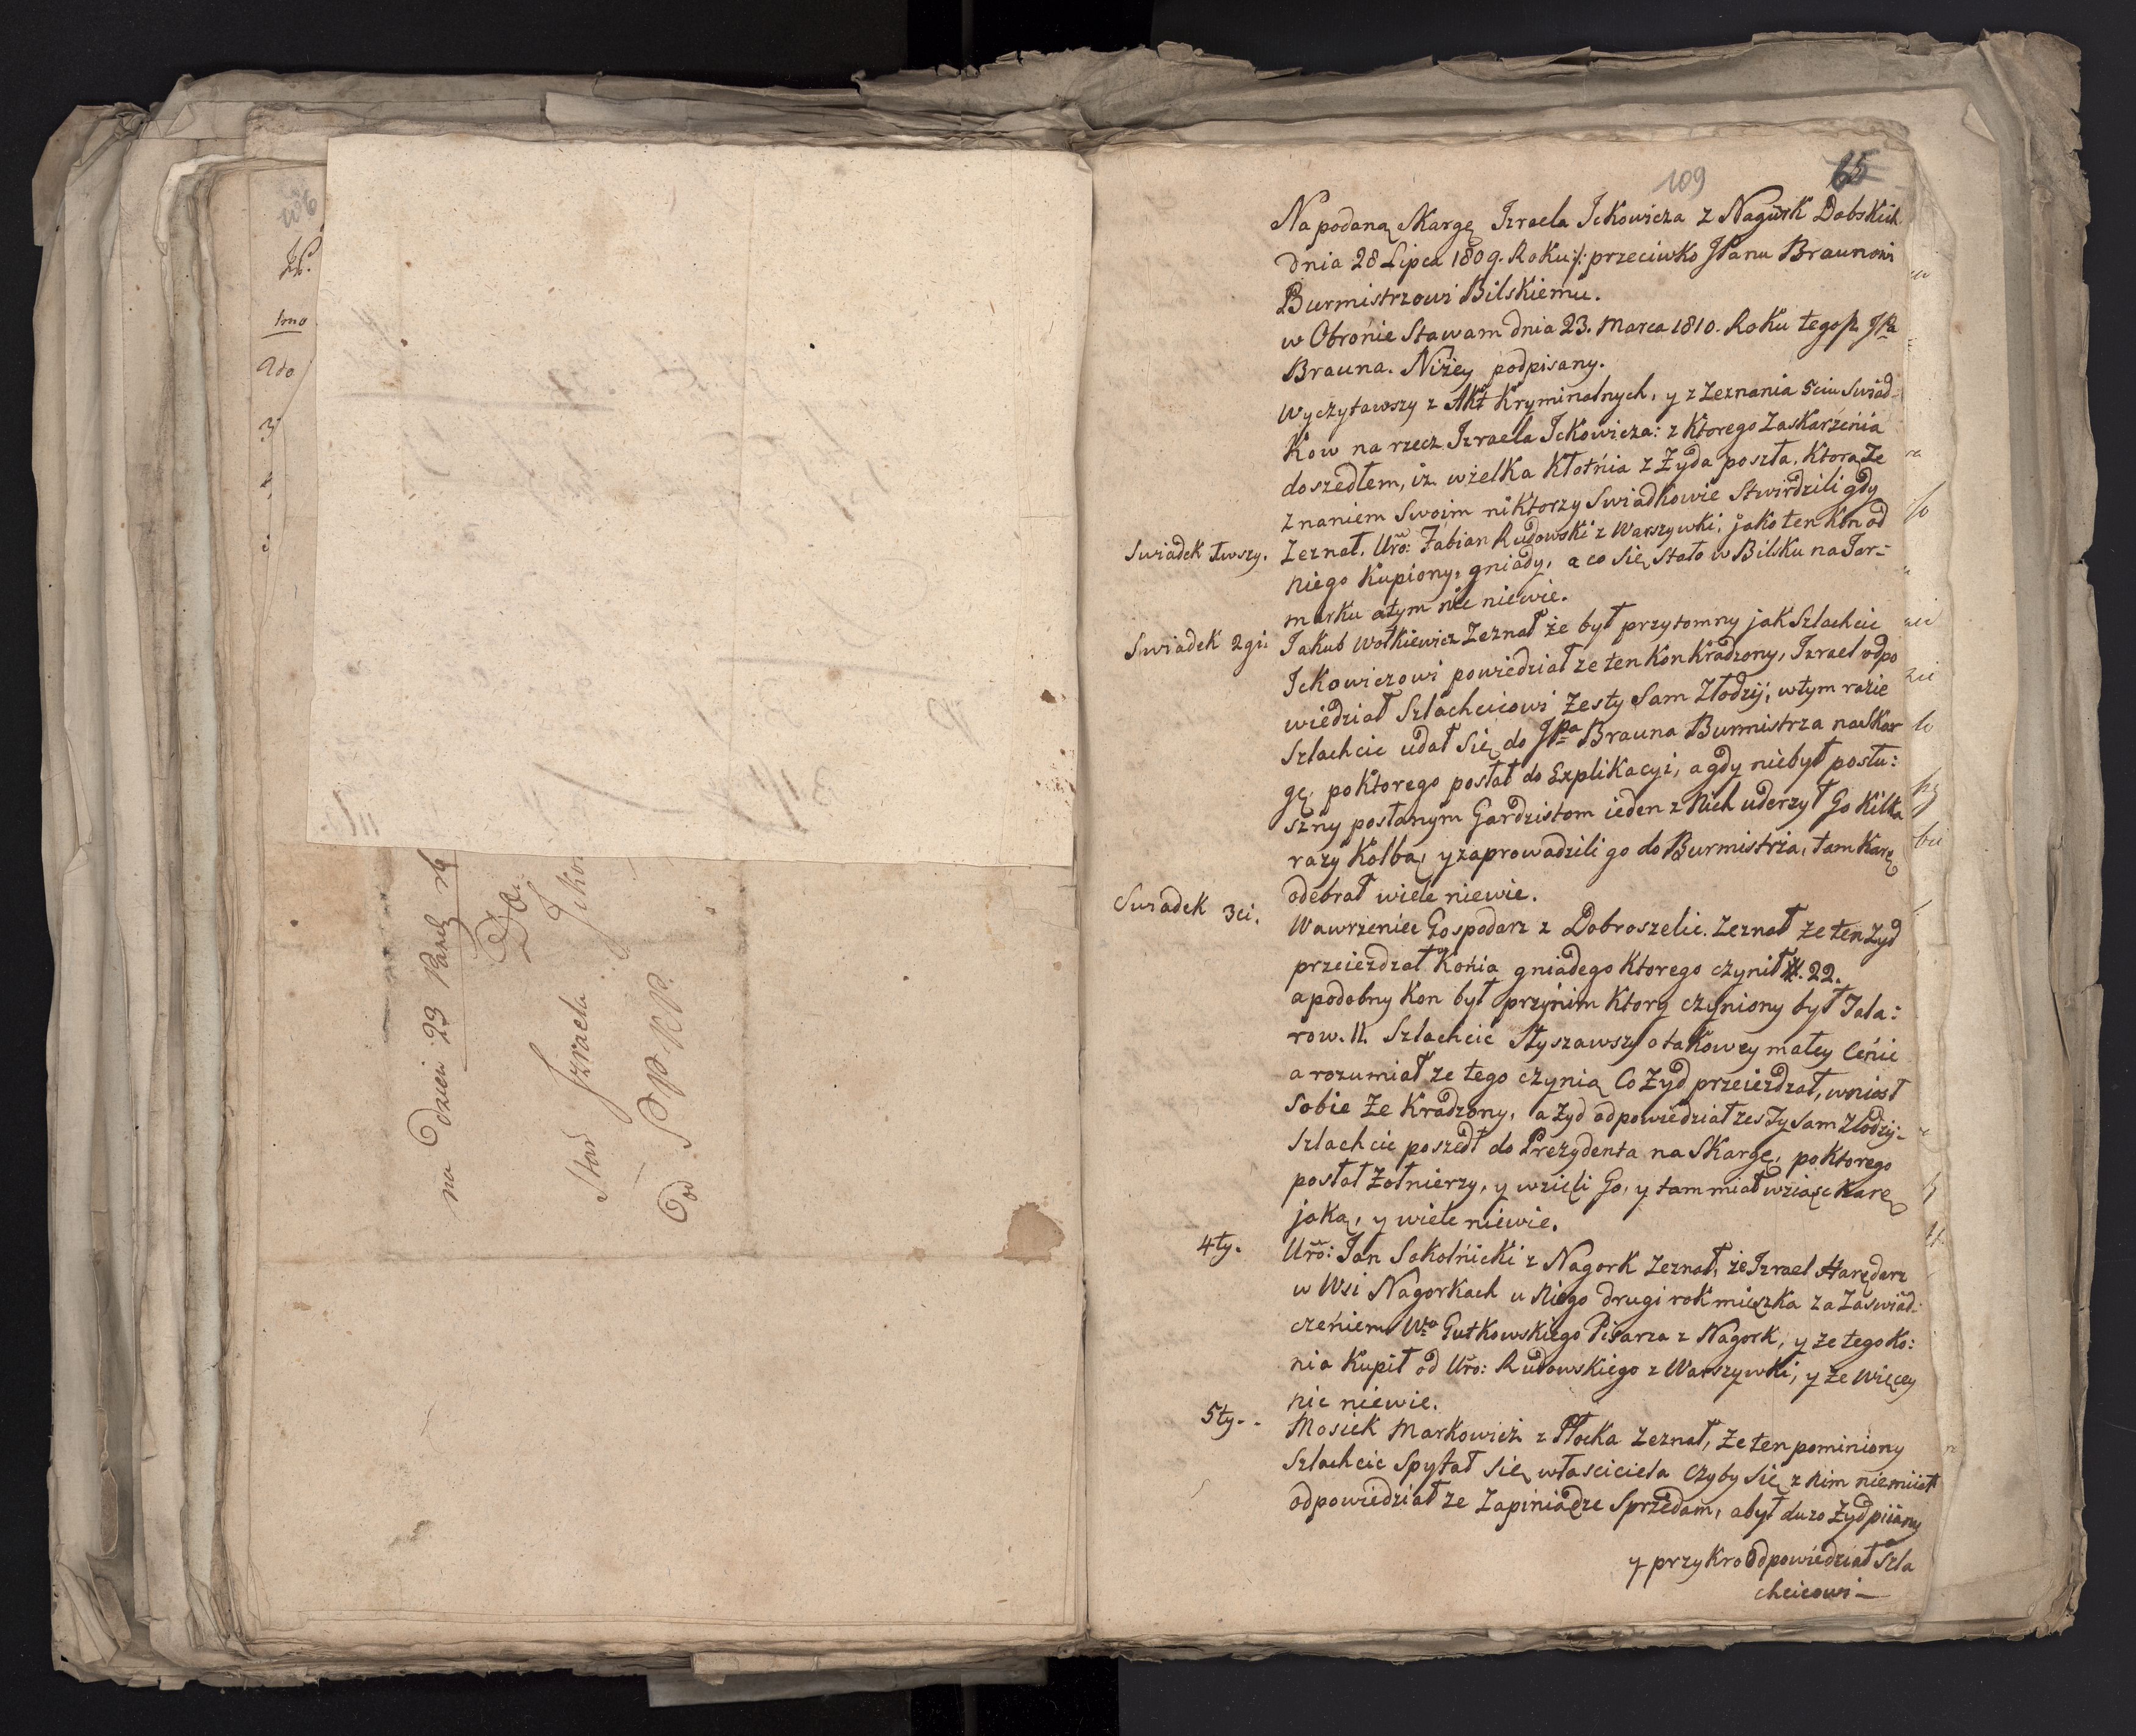 Jzł.
1mo
2do
3
na Dzień 23
Do.
Staw Izraela
Od P. P. K. P.
109
65
Na podaną Skargę Izraela Ickowicza z Nagürk Dobskich
dnia 28 Lipca 1809. Roku /: przeciwko JPanu Braunowi
Burmistrzowi Bilskiemu.
w Obronie Stawam dnia 23. Marca 1810. Roku tegoż JPa
Brauna. Niżey podpisany.
Wyczytawszy z Akt Kryminalnych, y z Zeznania 5ciu Swiad-
kow na rzecz Izraela Ickowicza: z Ktorego Zaskarżenia
doszedłem, iz wżelka Kłotnia z Żyda poszła, Ktorą Ze
znaniem Swoim niktorzy Swiadkowie Stwirdzili gdy
Swiadek 1wszy. Zeznał, Uro: Fabian Rudowski z Warszywki, jako ten Kon od
niego Kupiony, gniady, a co Się Stało w Bilsku na Jar-
marku otym nic niewie.
Swiadek 2gi. Jakub Wolkiewicz Zeznał że był przytomny jak Szlachcic
Ickowiczowi powiedział ze ten Kon Kradzony, Izrael odpo
wiedział Szlachcicowi Zesty Sam Złodzij, wtym razie
Szlachcic udał Się do JPa Brauna Burmistrza naskar
gę, poktorego posłał do Explikacyi, a gdy niebył posłu:
szny posłanym Gardzistom ieden z Nich uderzył Go Kilka
razy Kolbą, y zaprowadzili go do Burmistrza, tam Karę
odebrał wiele niewie.
Swiadek 3ci. Wawrzeniec Gospodarz z Dobroszelic. Zeznał Ze ten Zyd
przeiezdzał Konia gniadego Ktorego czynił #. 22.
a podobny Kon był przynim Ktory czyniony był Tala:
row. 11. Szlachcic Słyszawszy o takowey małey Cenie
a rozumiał ze tego czynią Co Zyd przeiezdzał, wniosł
Sobie Ze Kradzony, a Zyd odpowiedział zes Ty Sam Złodzij-
Szlachcic poszedł do Prezydenta na Skargę, poktorego
posłał Zołnierzy, y wzieli Go, y tam miał wziąść Karę
jaką, y wiele niewie.
4ty. Uro: Jan Sokolnicki z Nagork Zeznał, że Izrael Harędarz
w Wsi Nagorkach u Niego drugi rok mieszka za Zaswiad-
czeniem Wo Gutkowskiego Pisarza z Nagork, y ze tego Ko:
nia Kupił od Uro: Rudowskiego z Warszywki, y ze więcey
nic niewie.
5ty. Mosiek Markowicz z Płocka Zeznał, Ze ten pominiony
Szlachcic Spytał Się własciciela Czyby Się z Nim nieminiał
odpowiedział ze Zapiniądze Sprzedam, a był duzo Zyd piiany
y przykro Odpowiedział Szla
chcicowi—